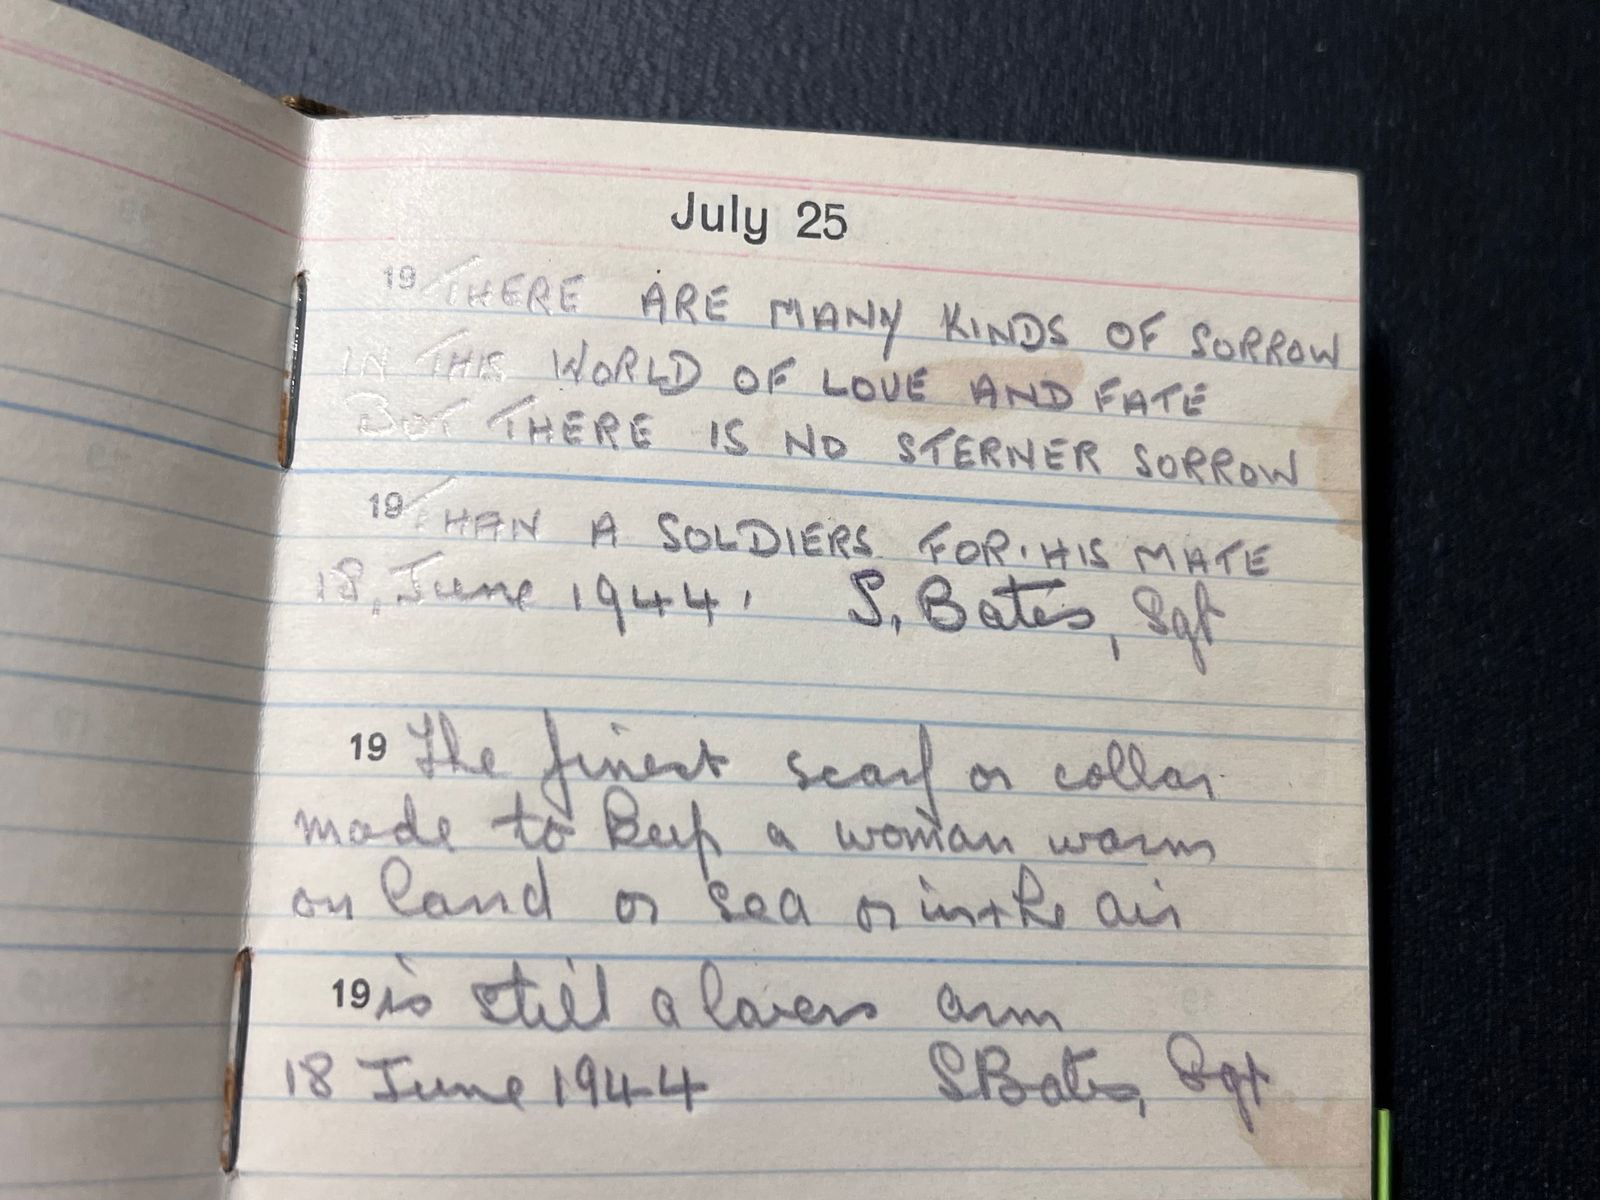 July 25
19 THERE ARE MANY KINDS OF SORROW
IN THIS WORLD OF LOVE AND FATE
BUT THERE IS NO STERNER SORROW
19 THAN A SOLDIERS FOR HIS MATE
18, June 1944. S. Bates, Sgt
19 The finest scarf or collar
made to keep a woman warm
on land or sea or in the air
19 is still a lovers arm
18 June 1944 S Bates, Sgt